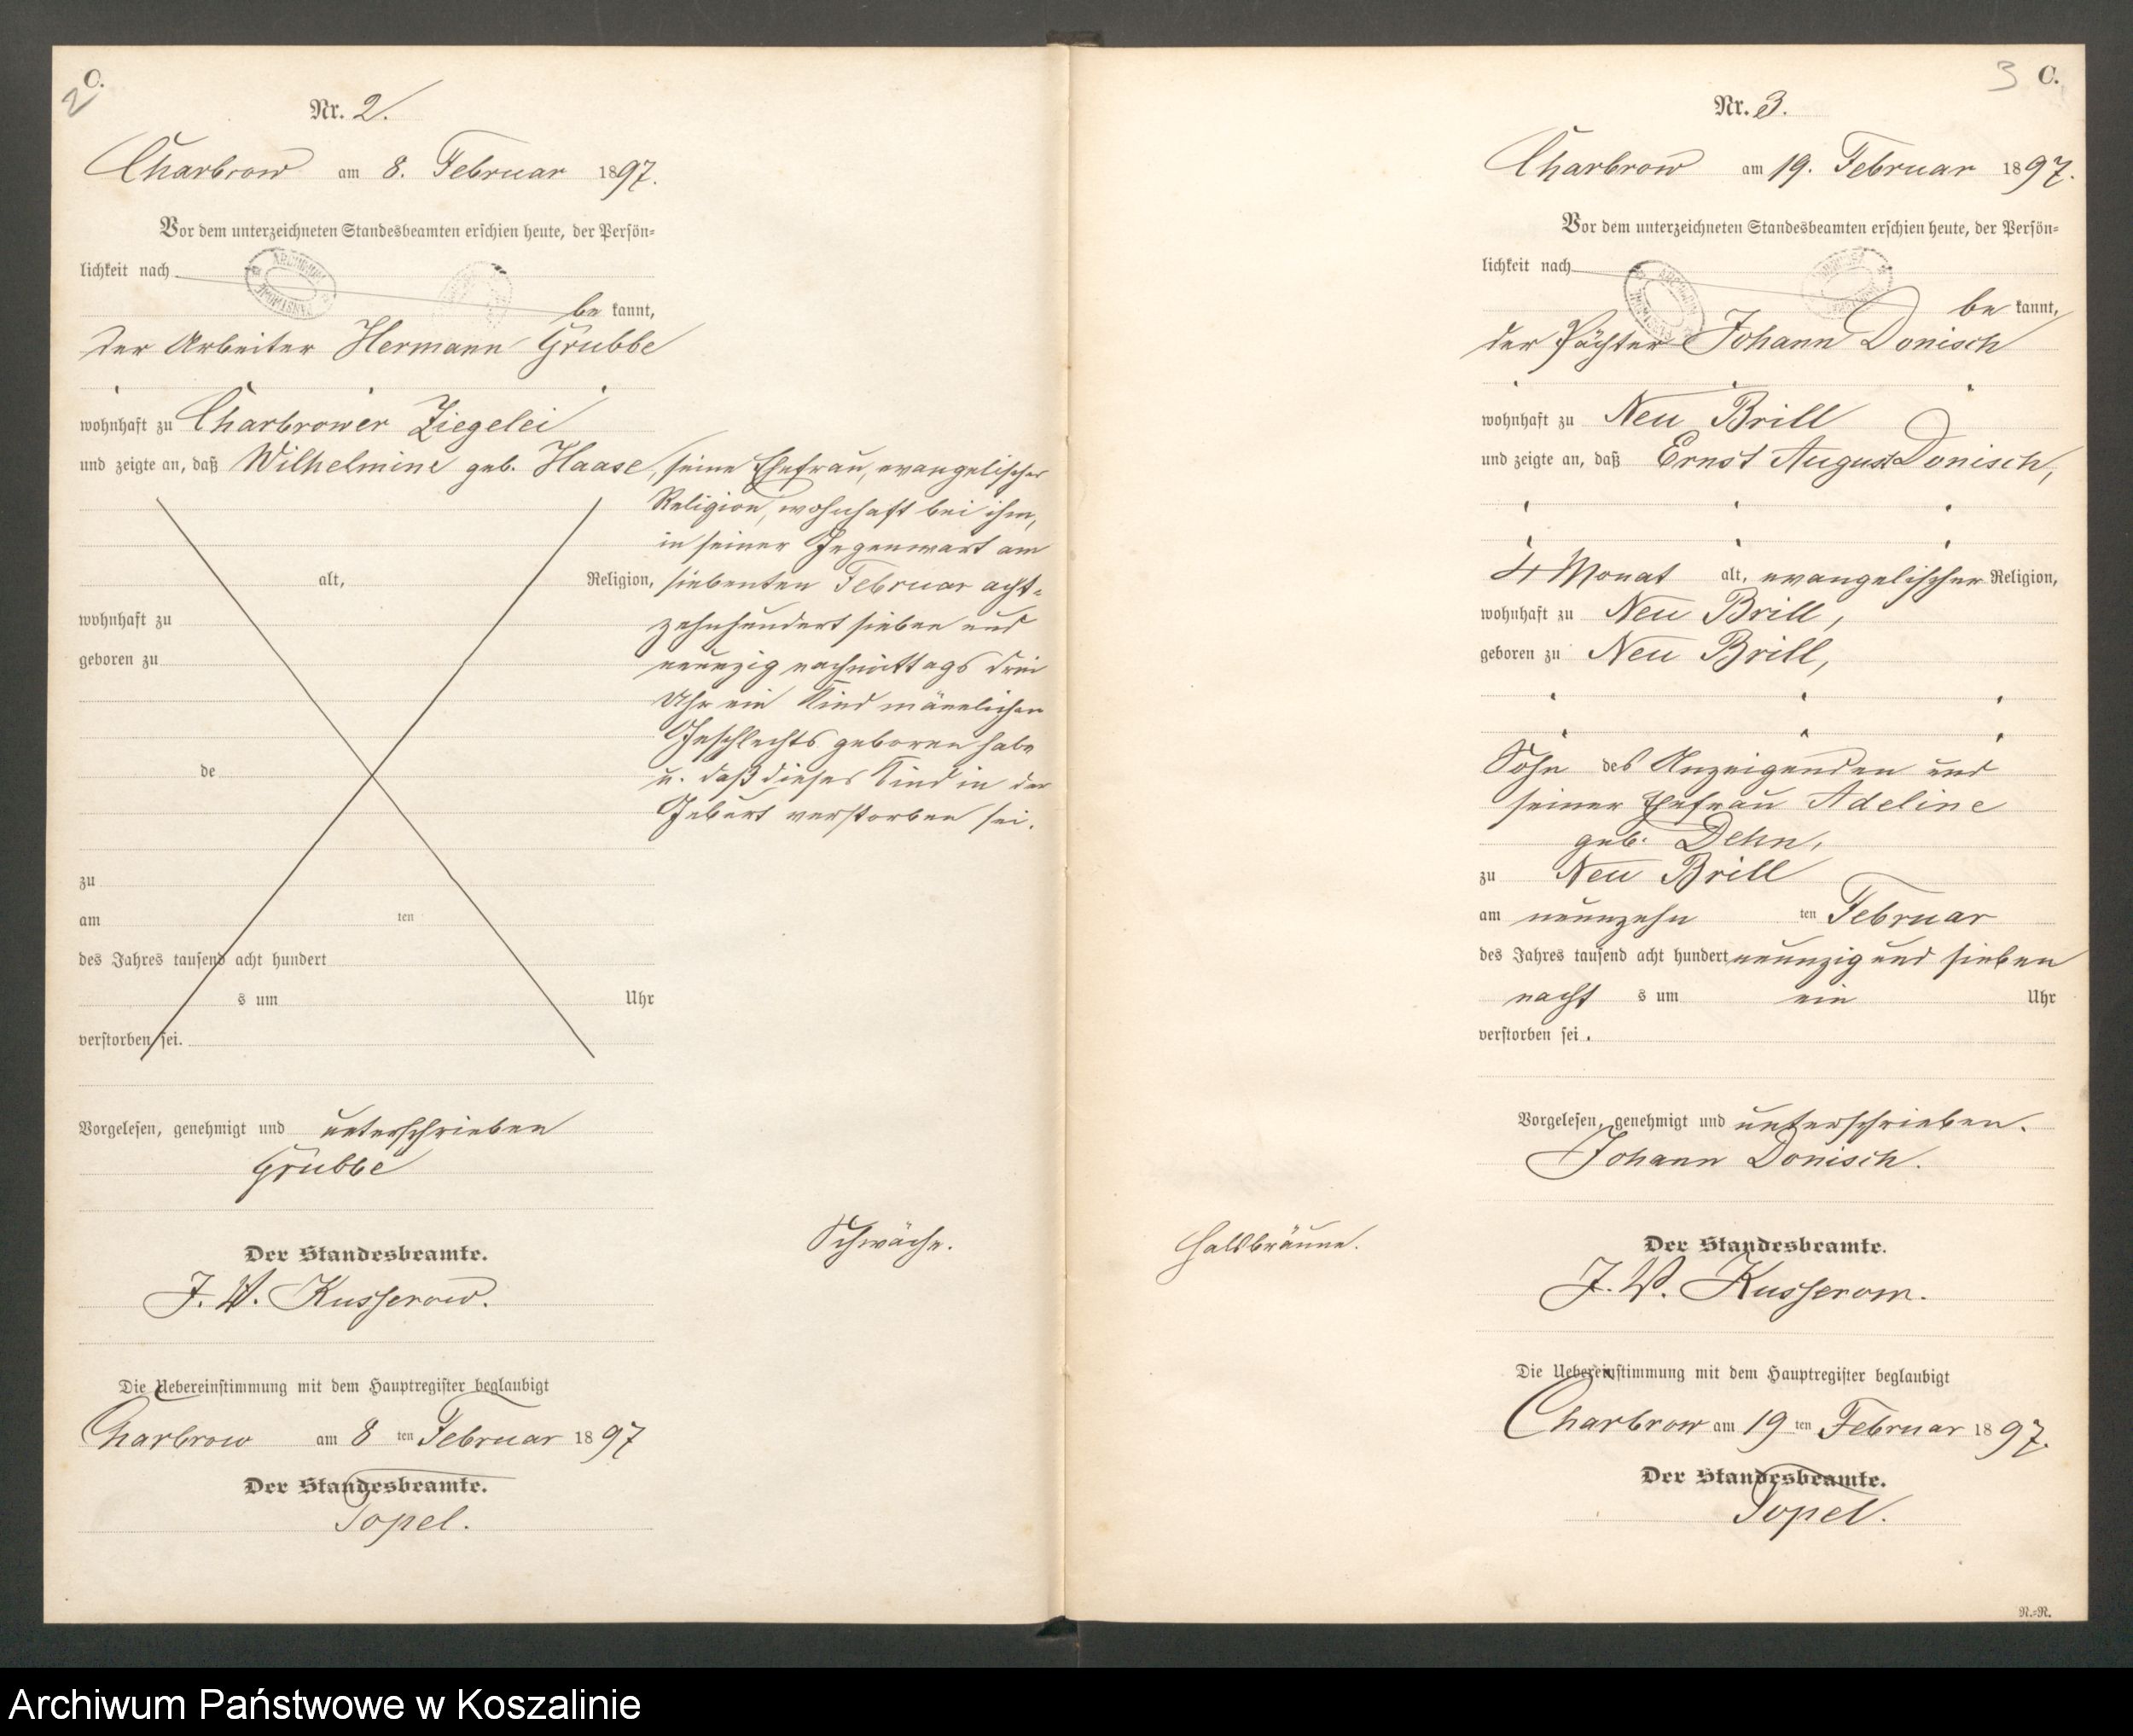 C.
2
Nr. 2.
Charbrow am 8. Februar 1897.
Vor dem unterzeichneten Standesbeamten erschien heute, der Persön=
lichkeit nach
be kannt,
der Arbeiter Hermann Grubbe
wohnhaft zu Charbrower Ziegelei
und zeigte an, daß Wilhelmine geb. Haase, seine Ehefrau, evangelischer
Religion, wohnhaft bei ihm,
in seiner Gegenwart am
alt, Religion, siebenten Februar acht=
wohnhaft zu zehnhundert sieben und
geboren zu neunzig nachmittags drei
Uhr ein Kind männlichen
Geschlechts geboren habe
de u. daß dieses Kind in der
Geburt verstorben sei.
zu
am ten
des Jahres tausend acht hundert
s um Uhr
verstorben sei.
Vorgelesen, genehmigt und unterschrieben
Grubbe
Schwäche.
Der Standesbeamte.
J. W. Kusserow.
Die Uebereinstimmung mit dem Hauptregister beglaubigt
Charbrow am 8 ten Februar 1897
Der Standesbeamte.
Topel.
3 C.
Nr. 3.
Charbrow am 19. Februar 1897.
Vor dem unterzeichneten Standesbeamten erschien heute, der Persön=
lichkeit nach
be kannt,
der Pächter Johann Donisch
wohnhaft zu Neu Brill
und zeigte an, daß Ernst August Donisch,
4 Monat alt, evangelischer Religion,
wohnhaft zu Neu Brill,
geboren zu Neu Brill,
Sohn des Anzeigenden und
seiner Ehefrau Adeline
geb. Dehn,
zu Neu Brill
am neunzehn ten Februar
des Jahres tausend acht hundert neunzig und sieben
nacht s um ein Uhr
verstorben sei.
Vorgelesen, genehmigt und unterschrieben.
Johann Donisch.
Halsbräune.
Der Standesbeamte.
J. W. Kusserow.
Die Uebereinstimmung mit dem Hauptregister beglaubigt
Charbrow am 19 ten Februar 1897.
Der Standesbeamte.
Topel.
N.=N.
Archiwum Państwowe w Koszalinie